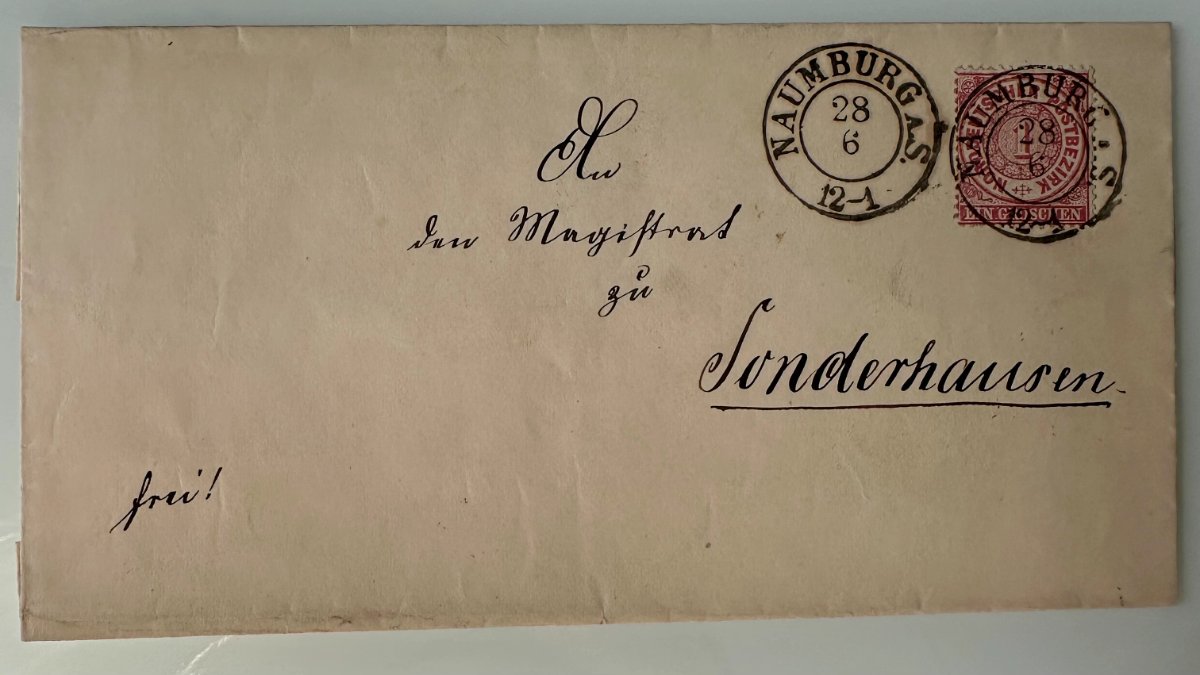 NAUMBURG A.S.
28
6
12-1
NORDDEUTSCHER POSTBEZIRK
1
EIN GROSCHEN
NAUMBURG A.S.
28
6
12-1
An
den Magistrat
zu
Sonderhausen
frei!